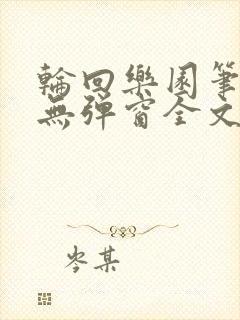 輪回樂園筆
無彈窗全文
岑某